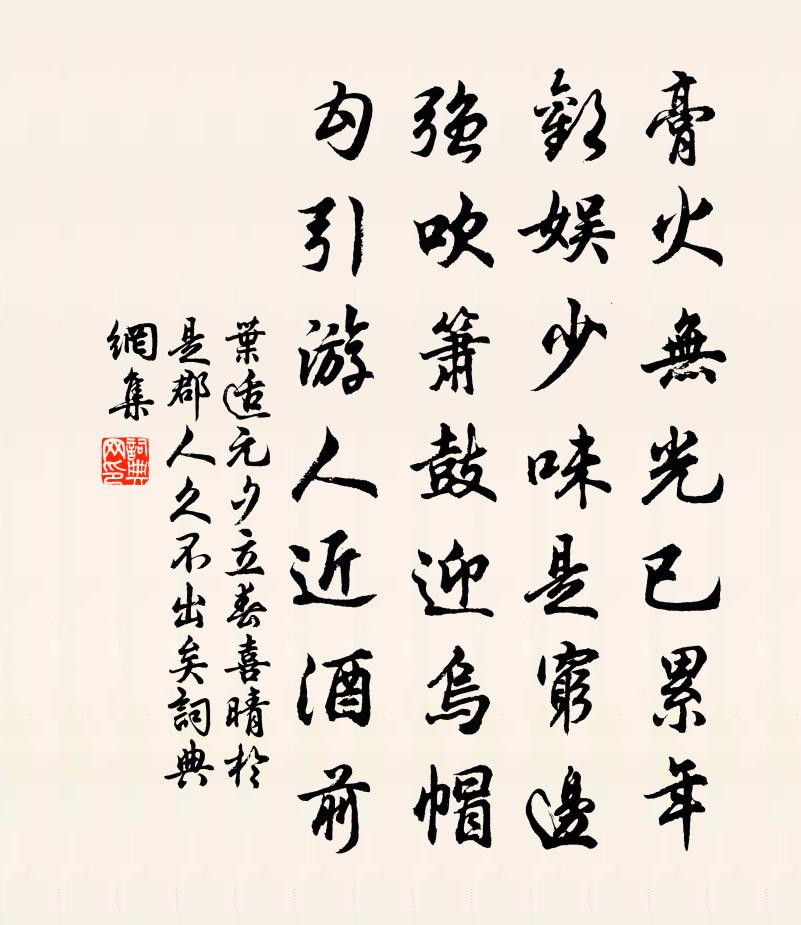 膏火無光已累年
歡娱少味是窮邊
強吹簫鼓迎烏帽
勾引游人近酒前
葉适元夕立春喜晴於
是郡人久不出矣詞典
網集
詞典網印